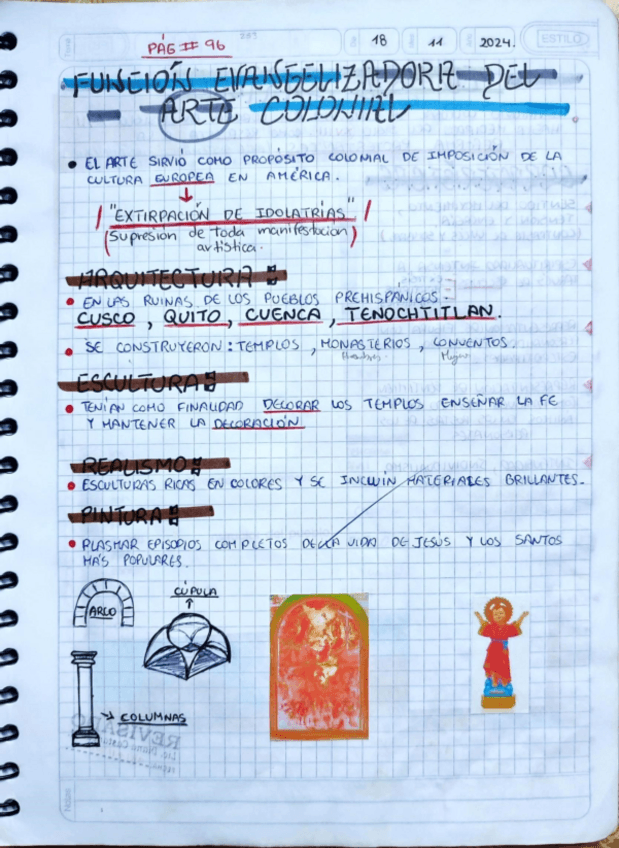 PÁG # 96
18 11 2024.
ESTILO
FUNCIÓN EVANGELIZADORA DEL
ARTE COLONIAL
• EL ARTE SIRVIÓ COMO PROPÓSITO COLONIAL DE IMPOSICIÓN DE LA
CULTURA EUROPEA EN AMÉRICA.
"EXTIRPACIÓN DE IDOLATRÍAS"
(Supresión de toda manifestación)
artística.
ARQUITECTURA:
• EN LAS RUINAS DE LOS PUEBLOS PREHISPÁNICOS.
CUSCO, QUITO, CUENCA, TENOCHTITLAN.
• SE CONSTRUYERON: TEMPLOS, MONASTERIOS, CONVENTOS.
ESCULTURA:
• TENÍAN COMO FINALIDAD DECORAR LOS TEMPLOS ENSEÑAR LA FE
Y MANTENER LA DECORACIÓN
REALISMO:
• ESCULTURAS RICAS EN COLORES Y SE INCLUÍN MATERIALES BRILLANTES.
PINTURA:
• PLASMAR EPISODIOS COMPLETOS DE LA VIDA DE JESUS Y LOS SANTOS
MÁS POPULARES.
ARCO
CÚPULA
COLUMNAS